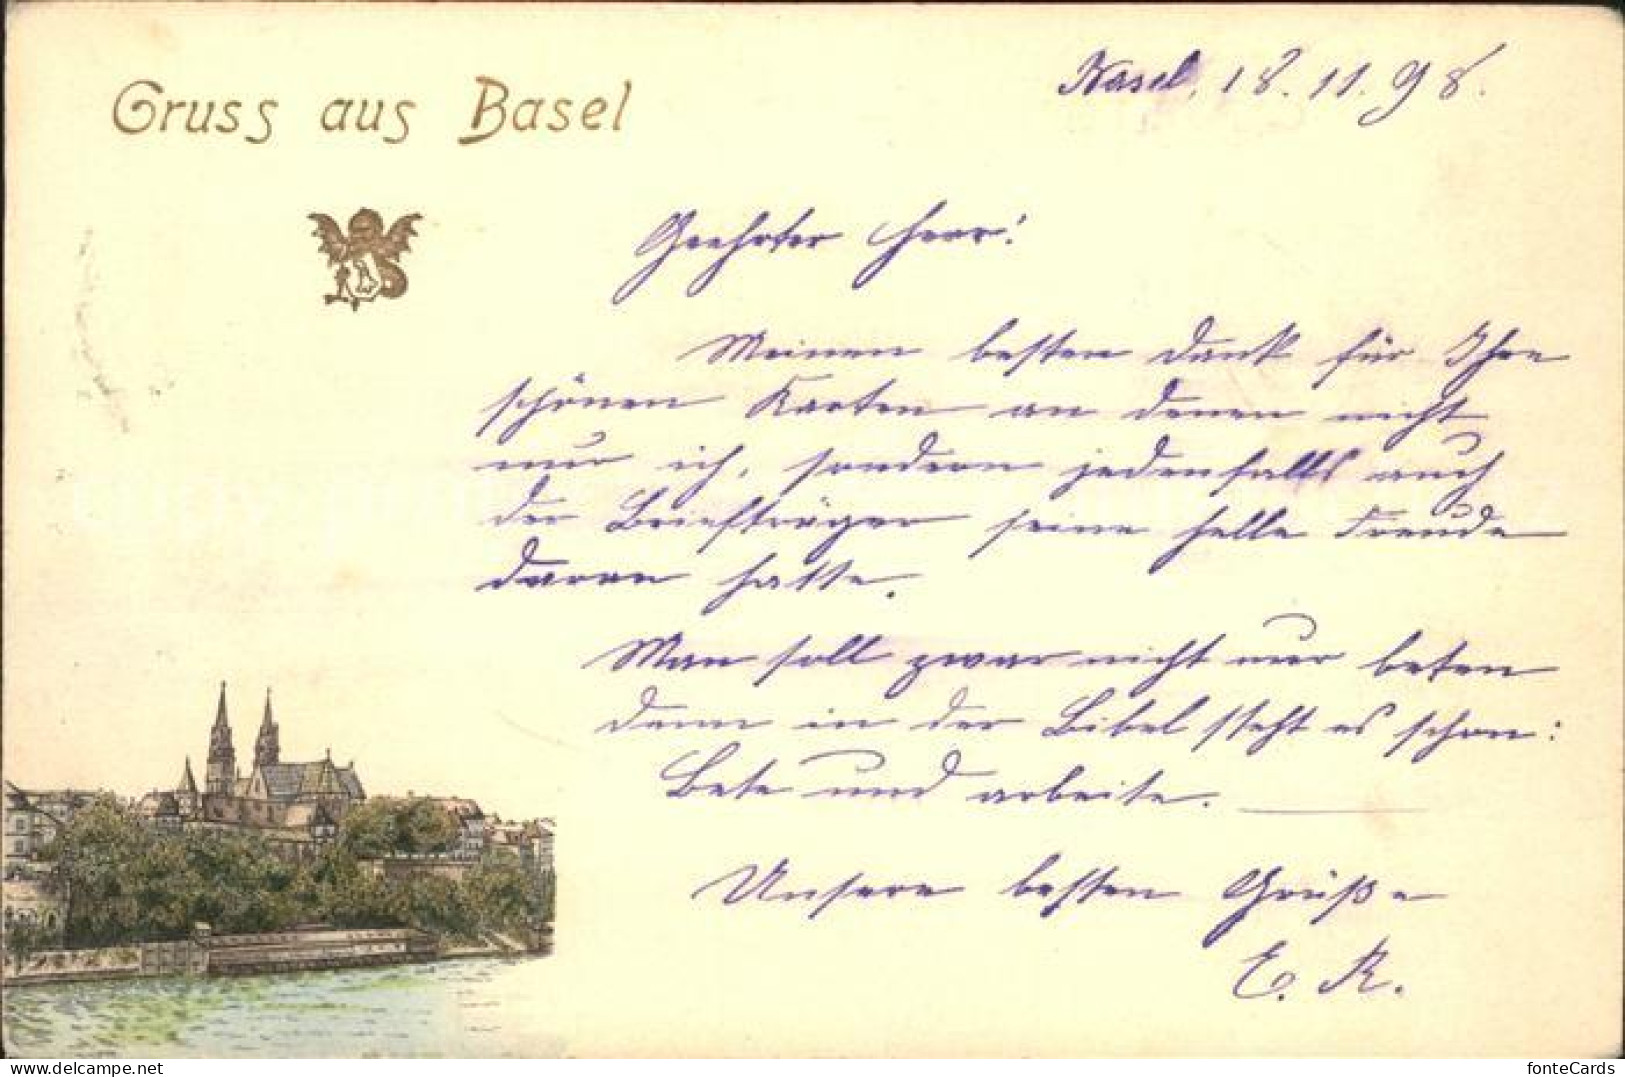 Gruss aus Basel
Basel, 18. 11. 98.
Geehrter Herr!
Meinen besten Dank für Ihre
schönen Karten an denen nicht
nur ich, sondern jedenfalls auch
der Briefträger seine helle Freude
daran hatte.
Man soll zwar nicht nur beten
denn in der Bibel steht es schon:
Bete und arbeite.
Unsere besten Grüße
E. R.
fonteCards
www.delcampe.net